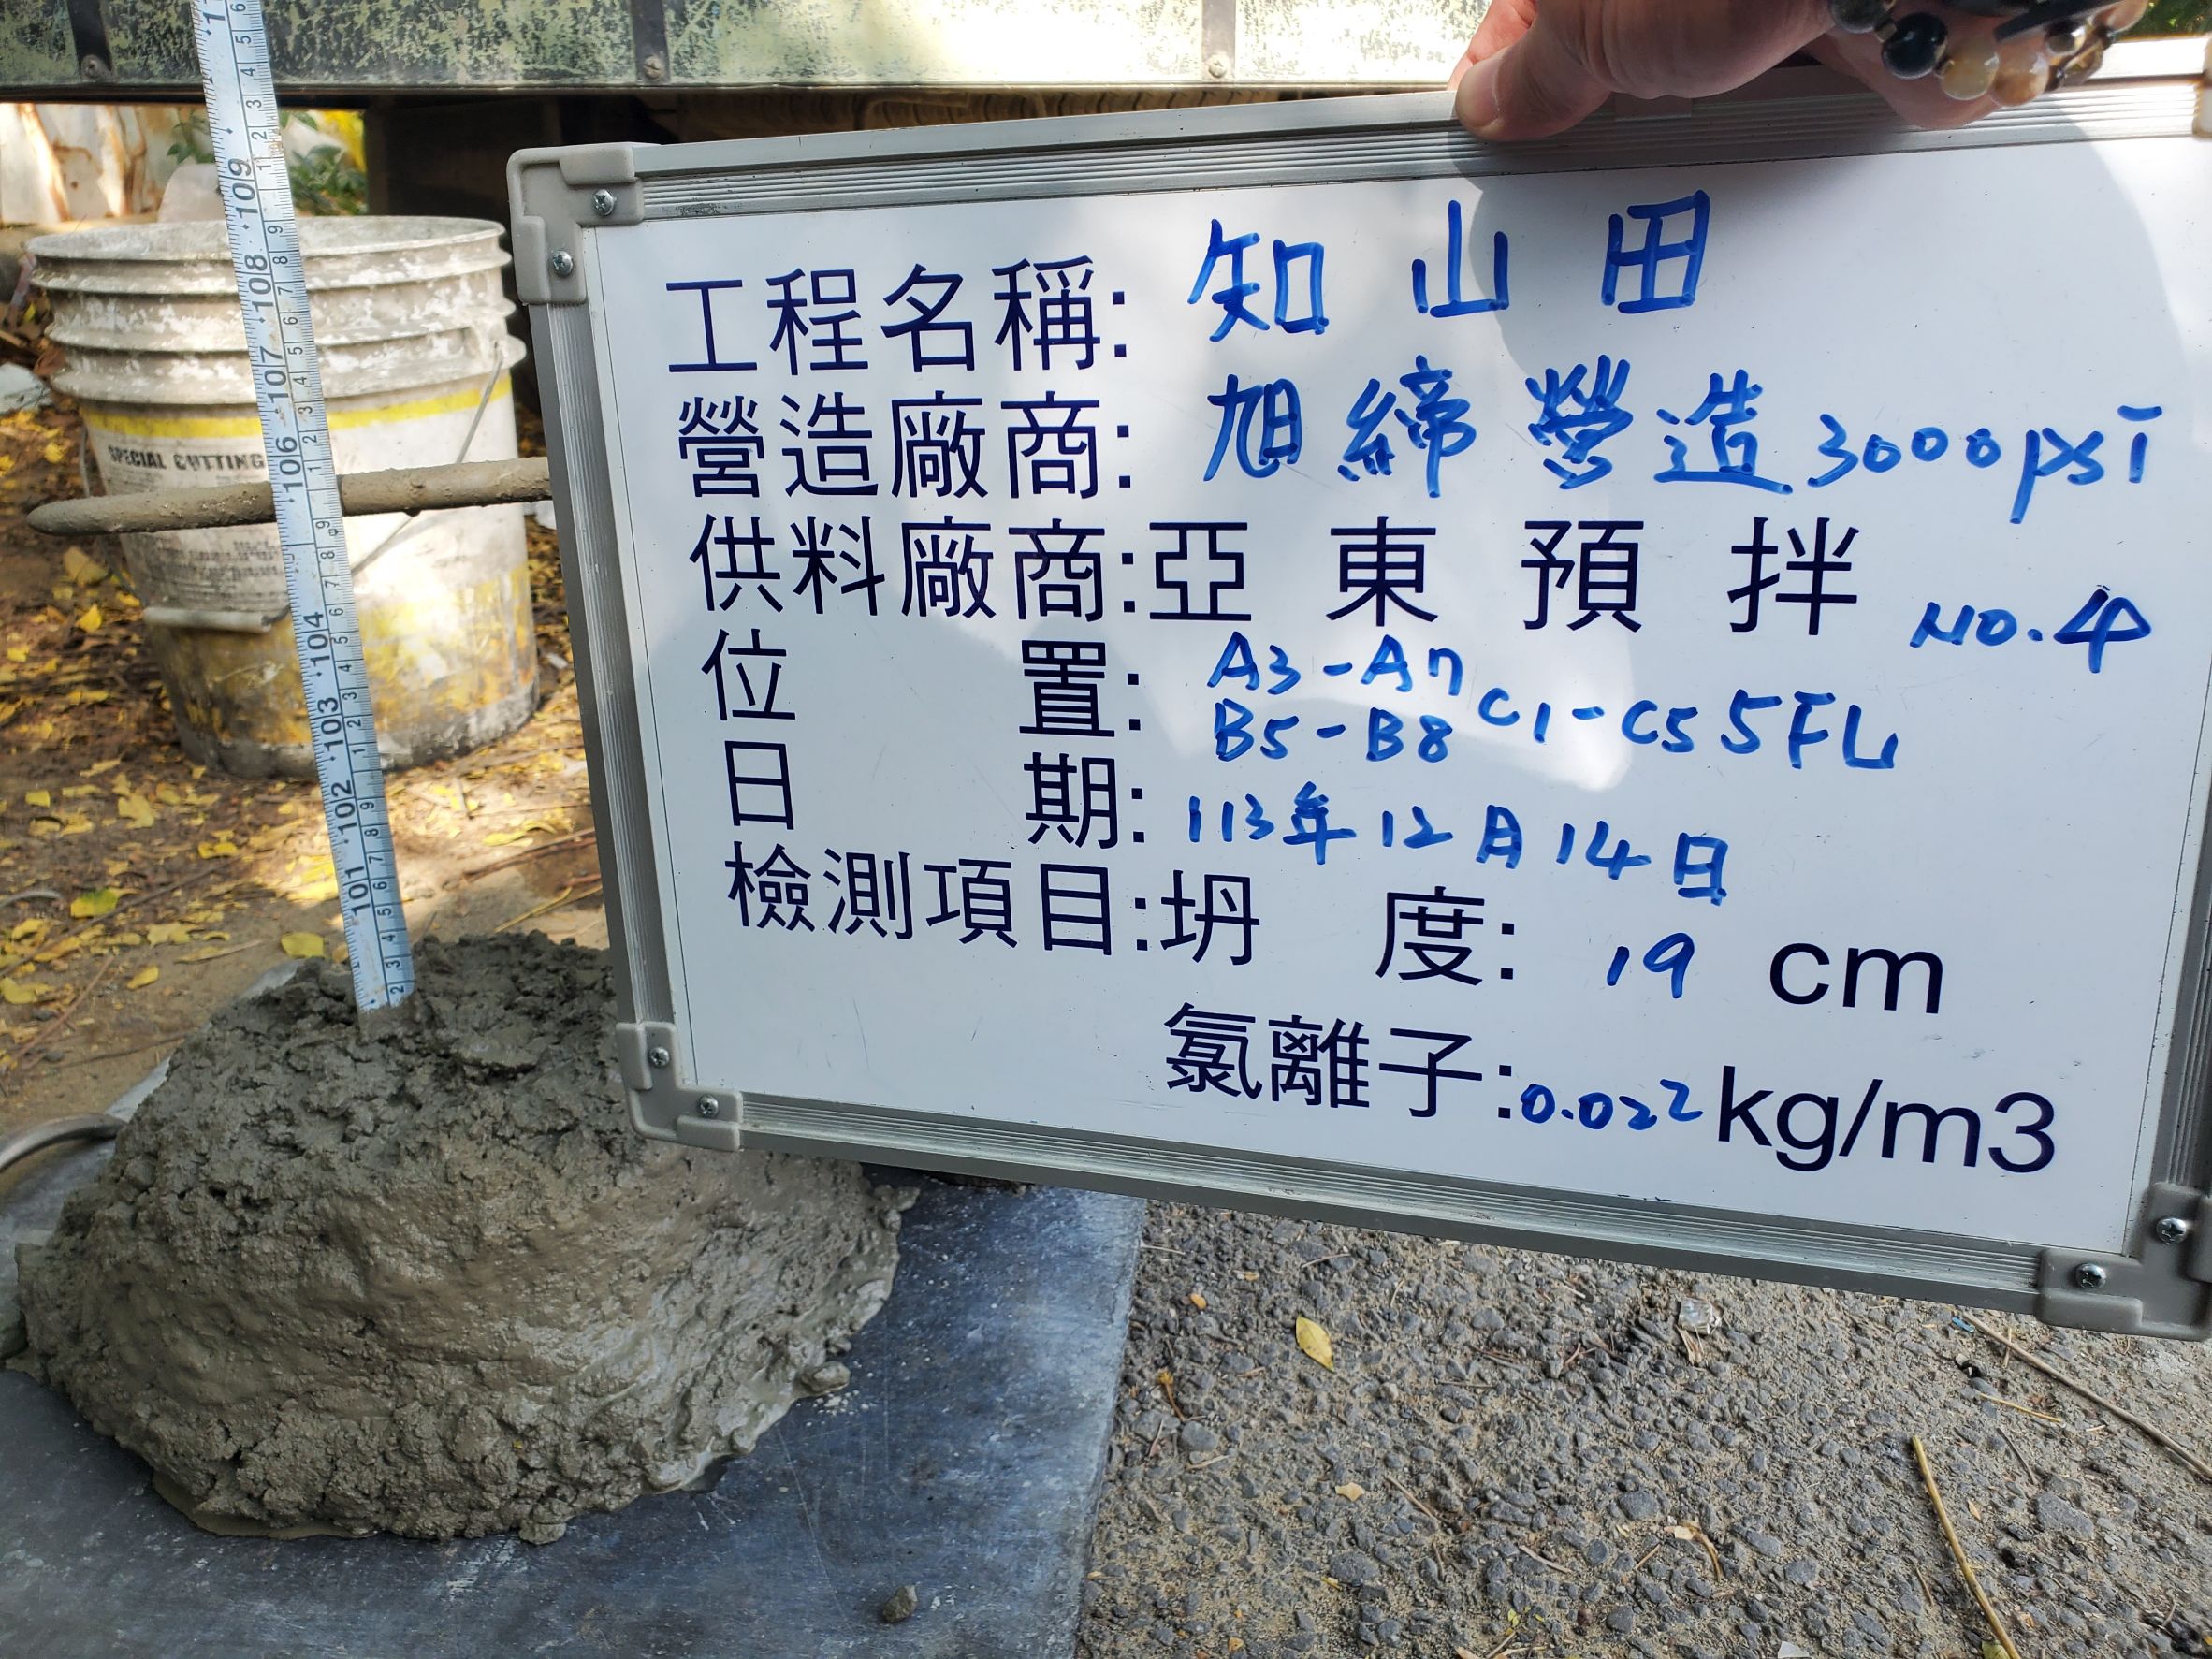 工程名稱: 知山田
營造廠商: 旭締營造 3000psi
供料廠商:亞東預拌 NO.4
位置: A3-A7 C1-C5 5FL
B5-B8
日期: 113年12月14日
檢測項目:坍度: 19 cm
氯離子:0.022 kg/m3
SPECIAL CUTTING
109
108
107
106
104
103
102
101